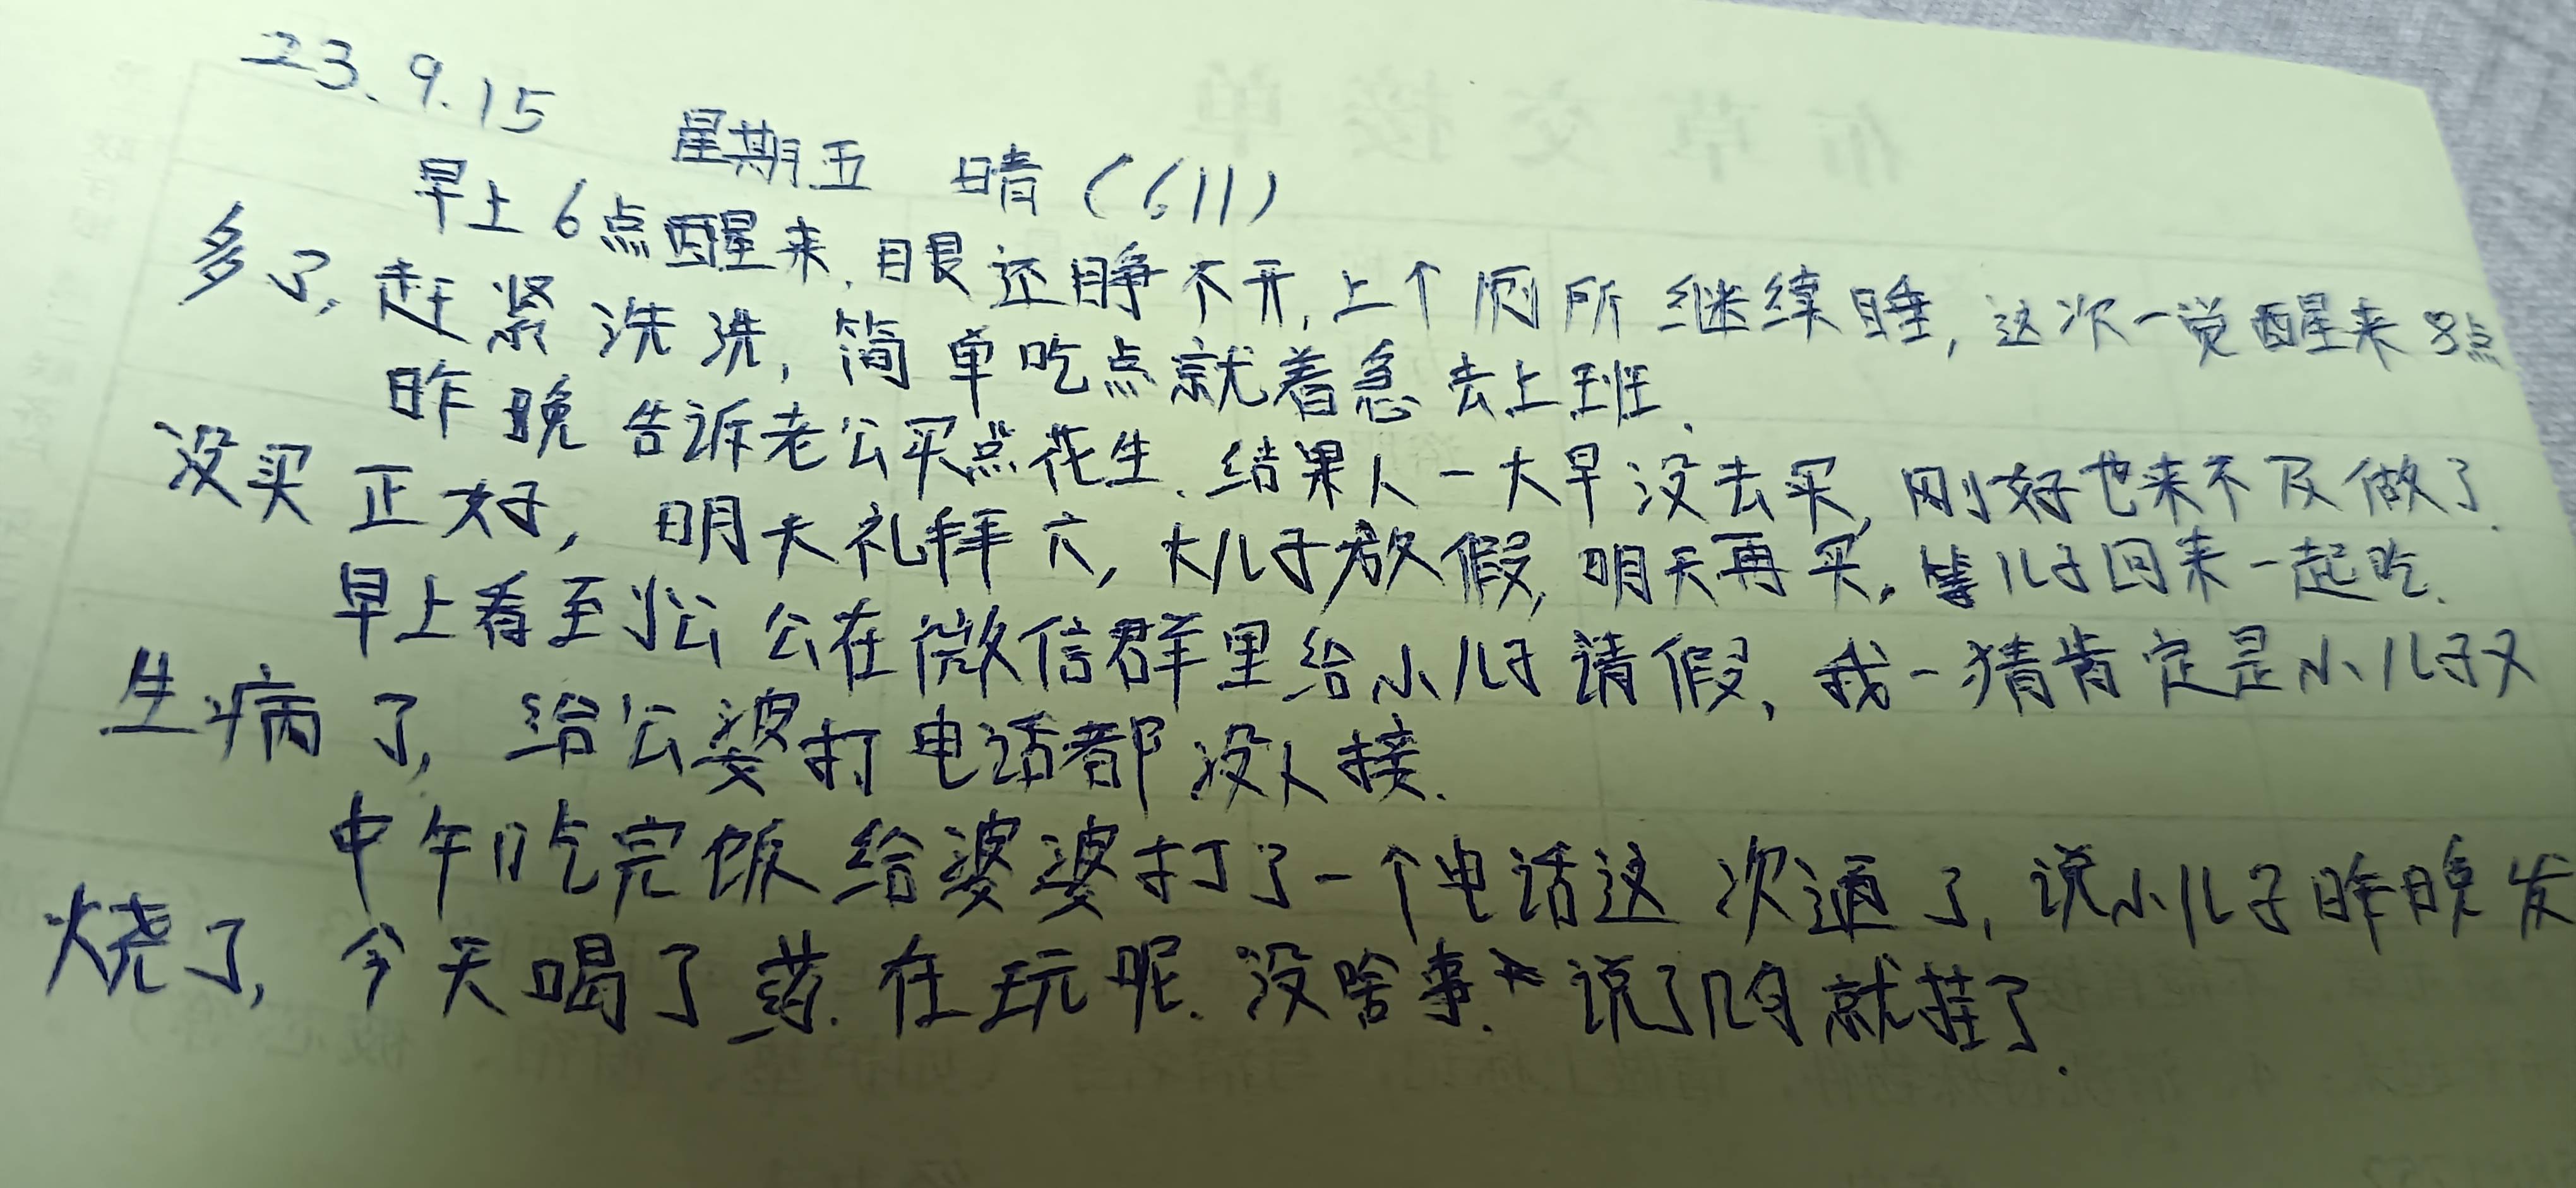 23.9.15 星期五 晴(611)
早上6点醒来,眼还睁不开,上个厕所继续睡,这次一觉醒来8点
多了,赶紧洗洗,简单吃点就着急去上班.
昨晚告诉老公买点花生.结果人一大早没去买,刚好也来不及做了.
没买正好,明天礼拜六,大儿子放假,明天再买,等儿子回来一起吃.
早上看到公公在微信群里给小儿子请假,我一猜肯定是小儿子又
生病了,给公婆打电话都没人接.
中午吃完饭给婆婆打了一个电话这次通了,说小儿子昨晚发
烧了,今天喝了药.在玩呢.没啥事.说了几句就挂了.